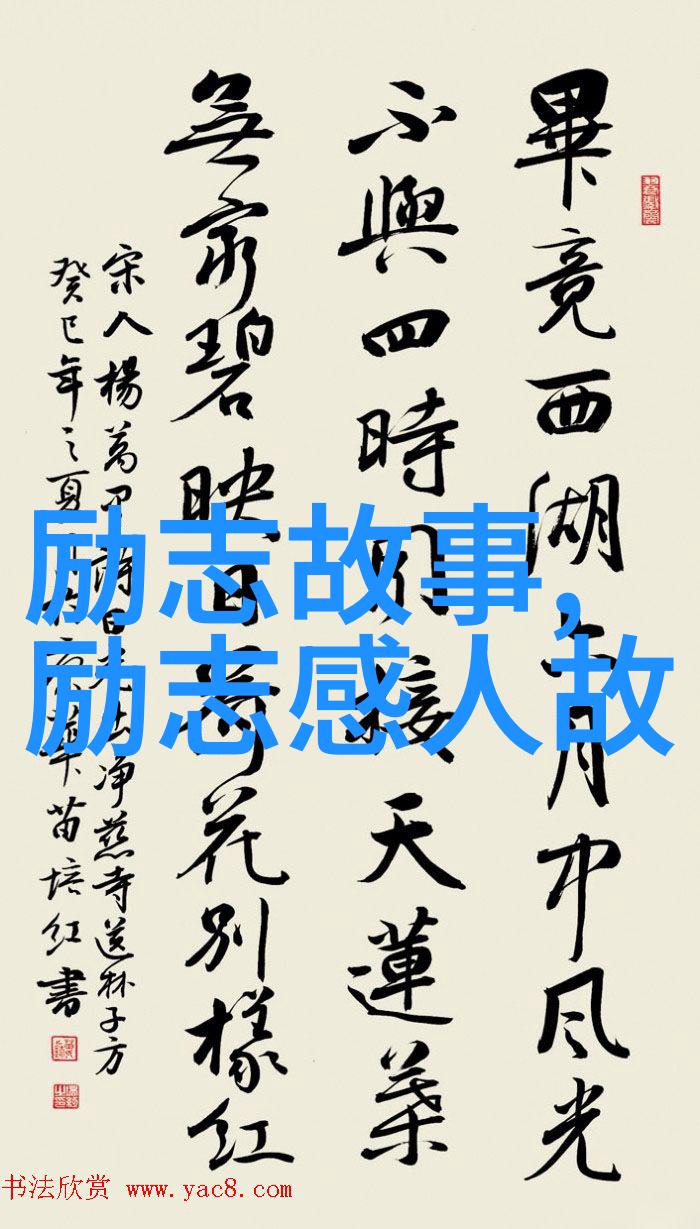 畢竟西湖六月中风光
不與四時同接天蓮葉
無窮碧映日荷花别樣红
宋人楊萬里詩曉出净慈寺送林子方
癸巳年之夏月於京華苗培红書
励志故事,
励志感人故
书法欣赏 www.yac8.com